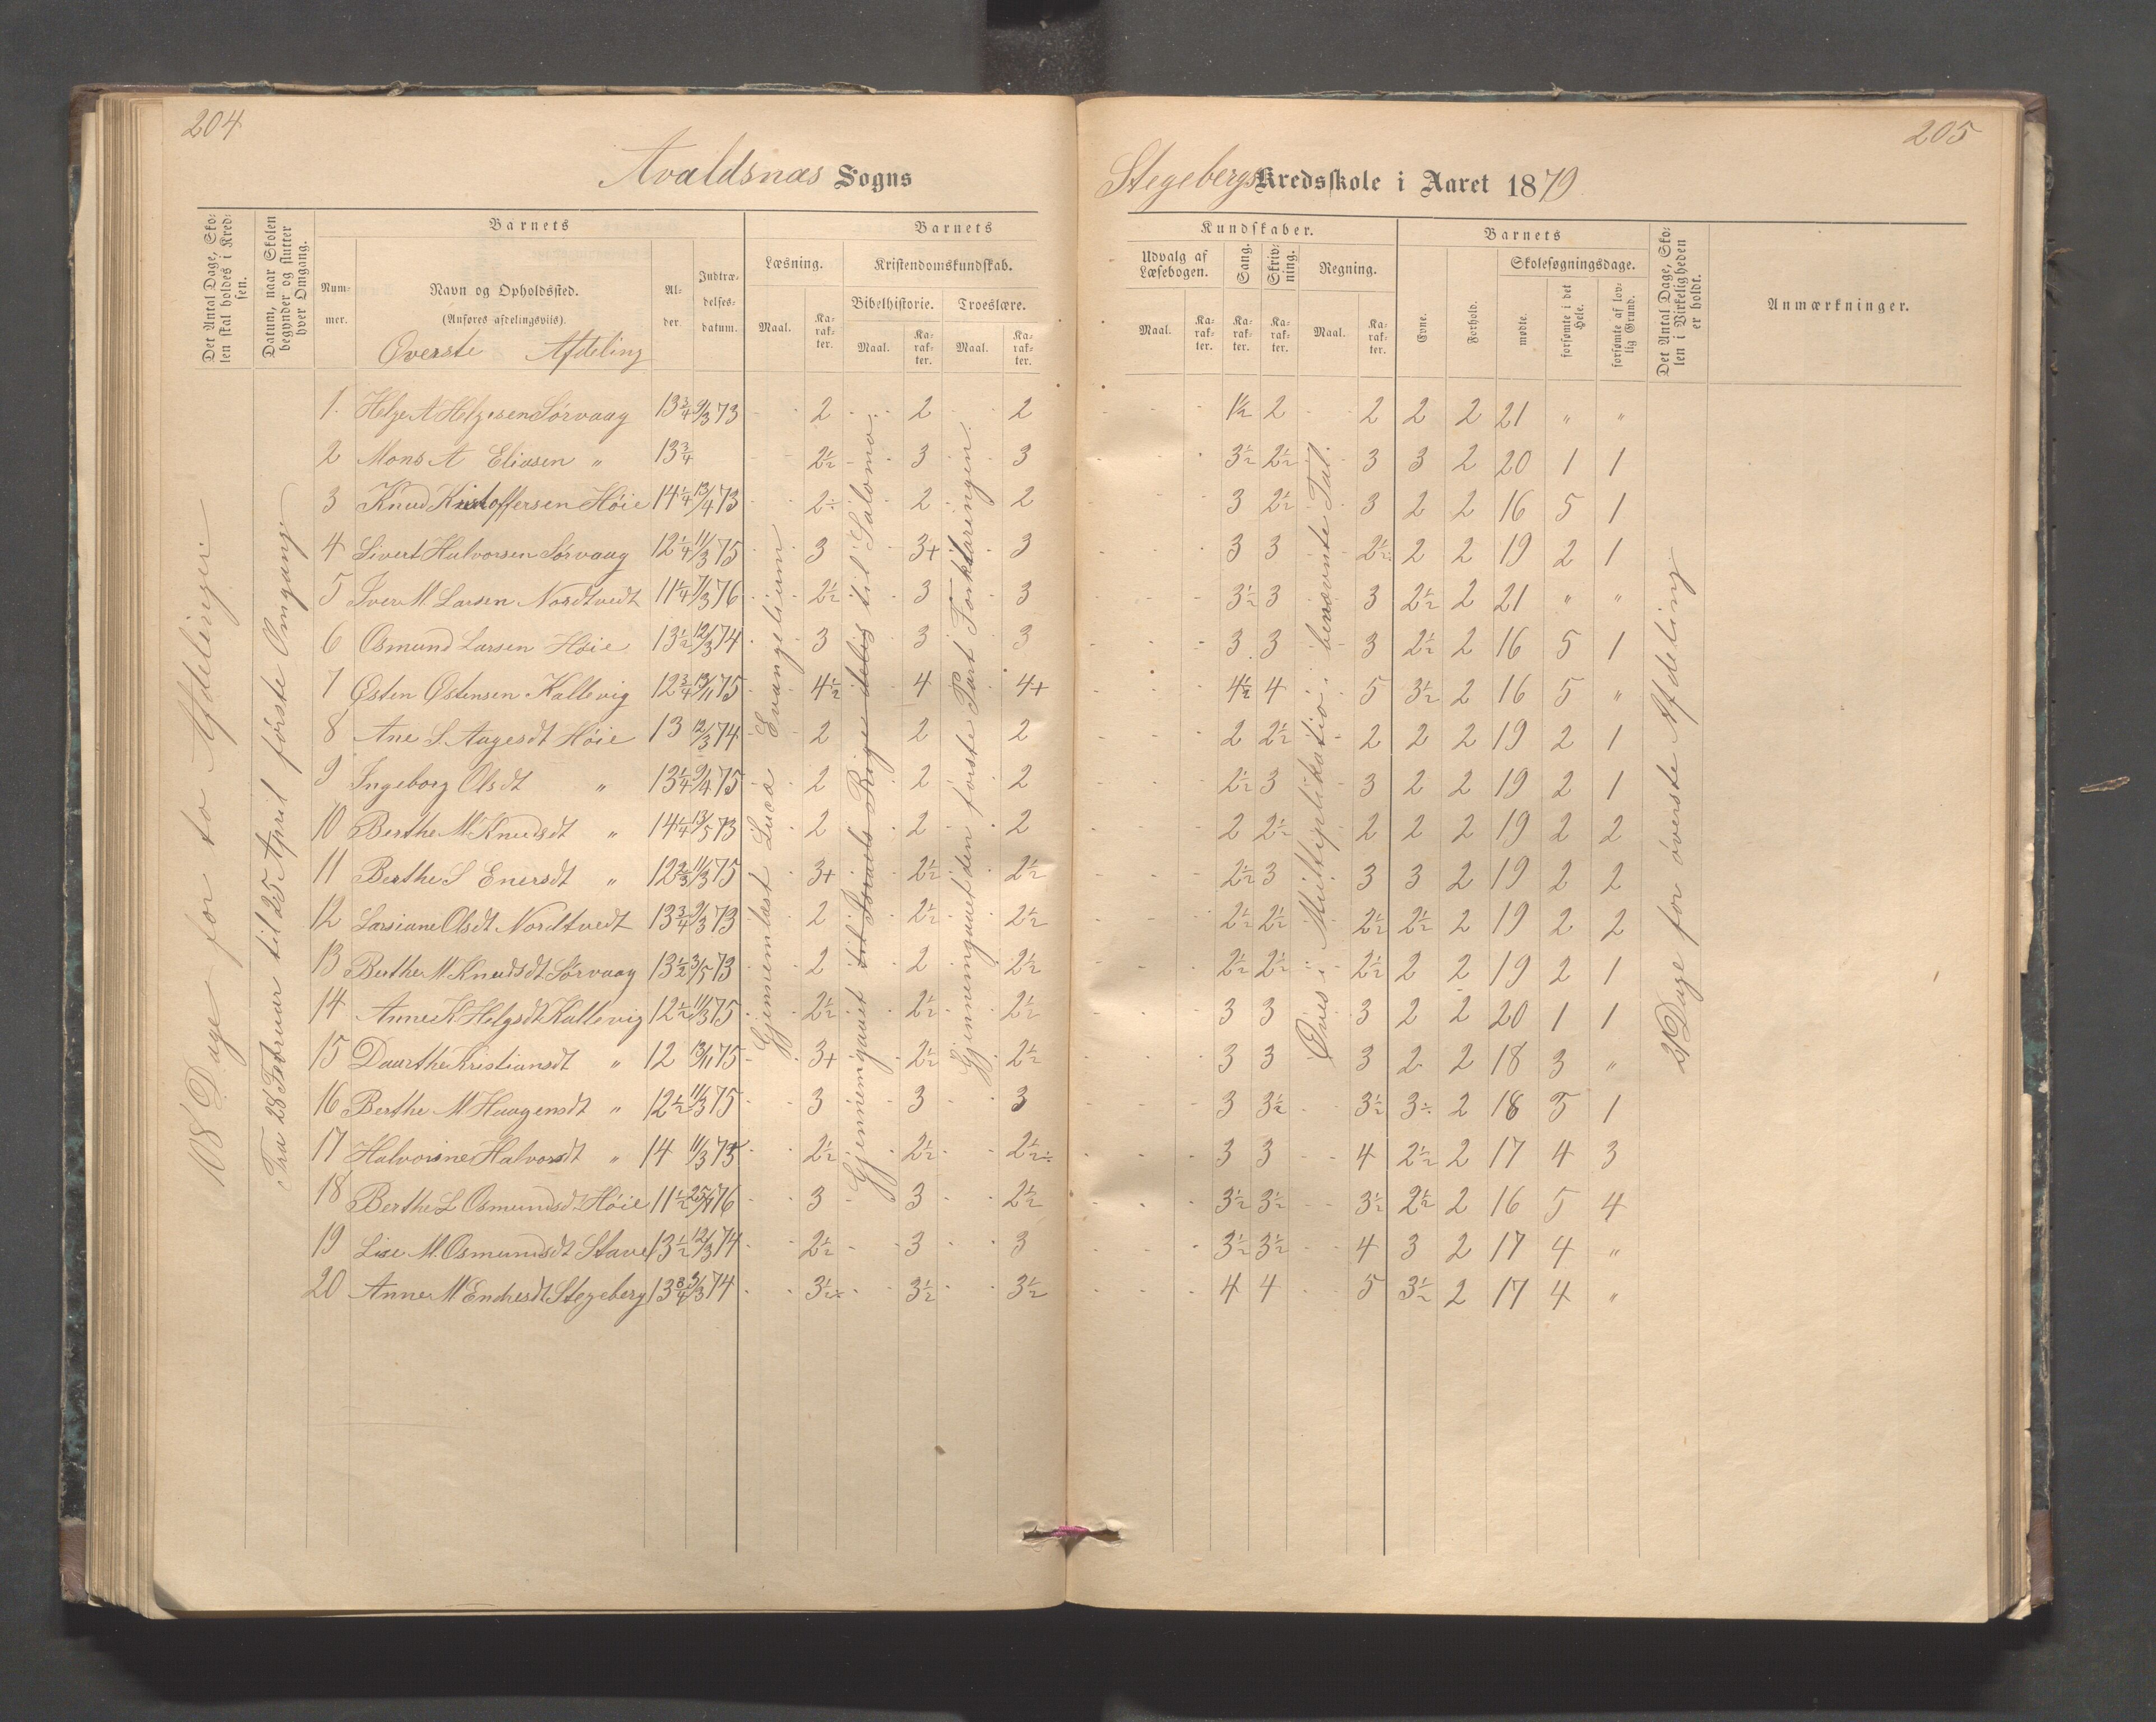 204
Avaldsnæs Sogns
Det Antal Dage, Skolen skal holdes i Kredsen.
Datum, naar Skolen begynder og slutter hver Omgang.
Barnets
Nummer.
Navn og Opholdssted.
(Anføres afdelingsviis).
Øverste Afdeling
Alder.
Indtrædelsesdatum.
Barnets
Læsning.
Maal.
Karakter.
Kristendomskundskab.
Bibelhistorie.
Maal.
Karakter.
Troeslære.
Maal.
Karakter.
108 Dage for to Afdelinger
Fra 28 Februar til 25 April første Omgang
Gjennemlæst Lucæ Evangelium
Gjennemgaaet til Israels Rige deling til Salomo.
Gjennemgaaet den første Part Forklaringen.
1. Helge A Helgesen Sørvaag 13 3/4 9/3 73 2 2 2
2 Mons A Eliasen " 13 3/4 2 1/2 3 3
3 Knud Kristoffersen Høie 14 1/4 13/4 73 2÷ 2 2
4 Sivert Halvorsen Sørvaag 12 1/4 11/3 75 3 3+ 3
5 Iver M. Larsen Nordtvedt 11 1/4 7/3 76 2 1/2 3 3
6 Osmund Larsen Høie 13 1/2 12/3 74 3 3 3
7 Østen Østensen Kallevig 12 3/4 13/11 75 4 1/2 4 4+
8 Ane S Aagesdt Høie 13 12/3 74 2 2 2
9 Ingeborg Olsdt " 13 1/4 9/4 75 2 2 2
10 Berthe M Knudsdt " 14 1/4 13/5 73 2 2 2
11 Berthe S Enersdt " 12 2/3 11/3 75 3+ 2 1/2 2 1/2
12 Larsiane Olsdt Nordtvedt 13 3/4 9/3 73 2 2 1/2 2 1/2
13 Berthe M Knudsdt Sørvaag 13 1/2 3/5 73 2 2 2 1/2
14 Anne K Helgsdt Kallevig 12 1/2 11/3 75 2 1/2 2 1/2 2 1/2
15 Daarthe Kristiansdt " 12 13/11 75 3+ 2 1/2 2 1/2
16 Berthe M Haagensdt " 12 1/2 11/3 75 3 3 3
17 Halvorine Halvorsdt " 14 11/3 73 2 1/2 2 1/2 2 1/2÷
18 Berthe L Osmundsdt Høie 11 1/2 25/4 76 3 3 2 1/2
19 Lise M. Osmundsdt Stave 13 1/2 12/3 74 2 1/2 3 3
20 Anne M Endresdt Stegeberg 13 3/4 3/3 74 3 1/2÷ 3 1/2 3 1/2
205
Stegebergs Kredsskole i Aaret 1879
Kundskaber.
Udvalg af Læsebogen.
Maal.
Karakter.
Sang.
Karakter.
Skrivning.
Karakter.
Regning.
Maal.
Karakter.
Barnets
Evne.
Forhold.
Skolesøgningsdage.
mødte.
forsømte i det Hele.
forsømte af lovlig Grund.
Det Antal Dage, Skolen i Virkeligheden er holdt.
Anmærkninger.
Øves i Multiplikatio i benævnte Tal.
21 Dage for øverste Afdeling
1 1/2 2 2 2 2 21 " "
3 1/2 2 1/2 3 3 2 20 1 1
3 2 1/2 3 2 2 16 5 1
3 3 2 1/2÷ 2 2 19 2 1
3 1/2 3 3 2 1/2 2 21 " "
3 3 3 2 1/2 2 16 5 1
4 1/2 4 5 3 1/2 2 16 5 "
2 2 1/2 2 2 2 19 2 1
2 1/2 3 3 2 2 19 2 1
2 2 1/2 2 2 2 19 2 2
2 1/2 3 3 3 2 19 2 2
2 1/2 2 1/2 2 1/2 2 1/2 2 19 2 2
2 1/2 2 1/2 2 1/2 2 2 19 2 1
3 3 3 2 2 20 1 1
3 3 3 2 2 18 3 "
3 3 1/2 3 1/2 3÷ 2 18 3 1
3 3 4 2 1/2 2 17 4 3
3 1/2 3 1/2 3 1/2 2 1/2 2 16 5 4
3 1/2 3 1/2 4 3 2 17 4 "
4 4 5 3 1/2 2 17 4 "